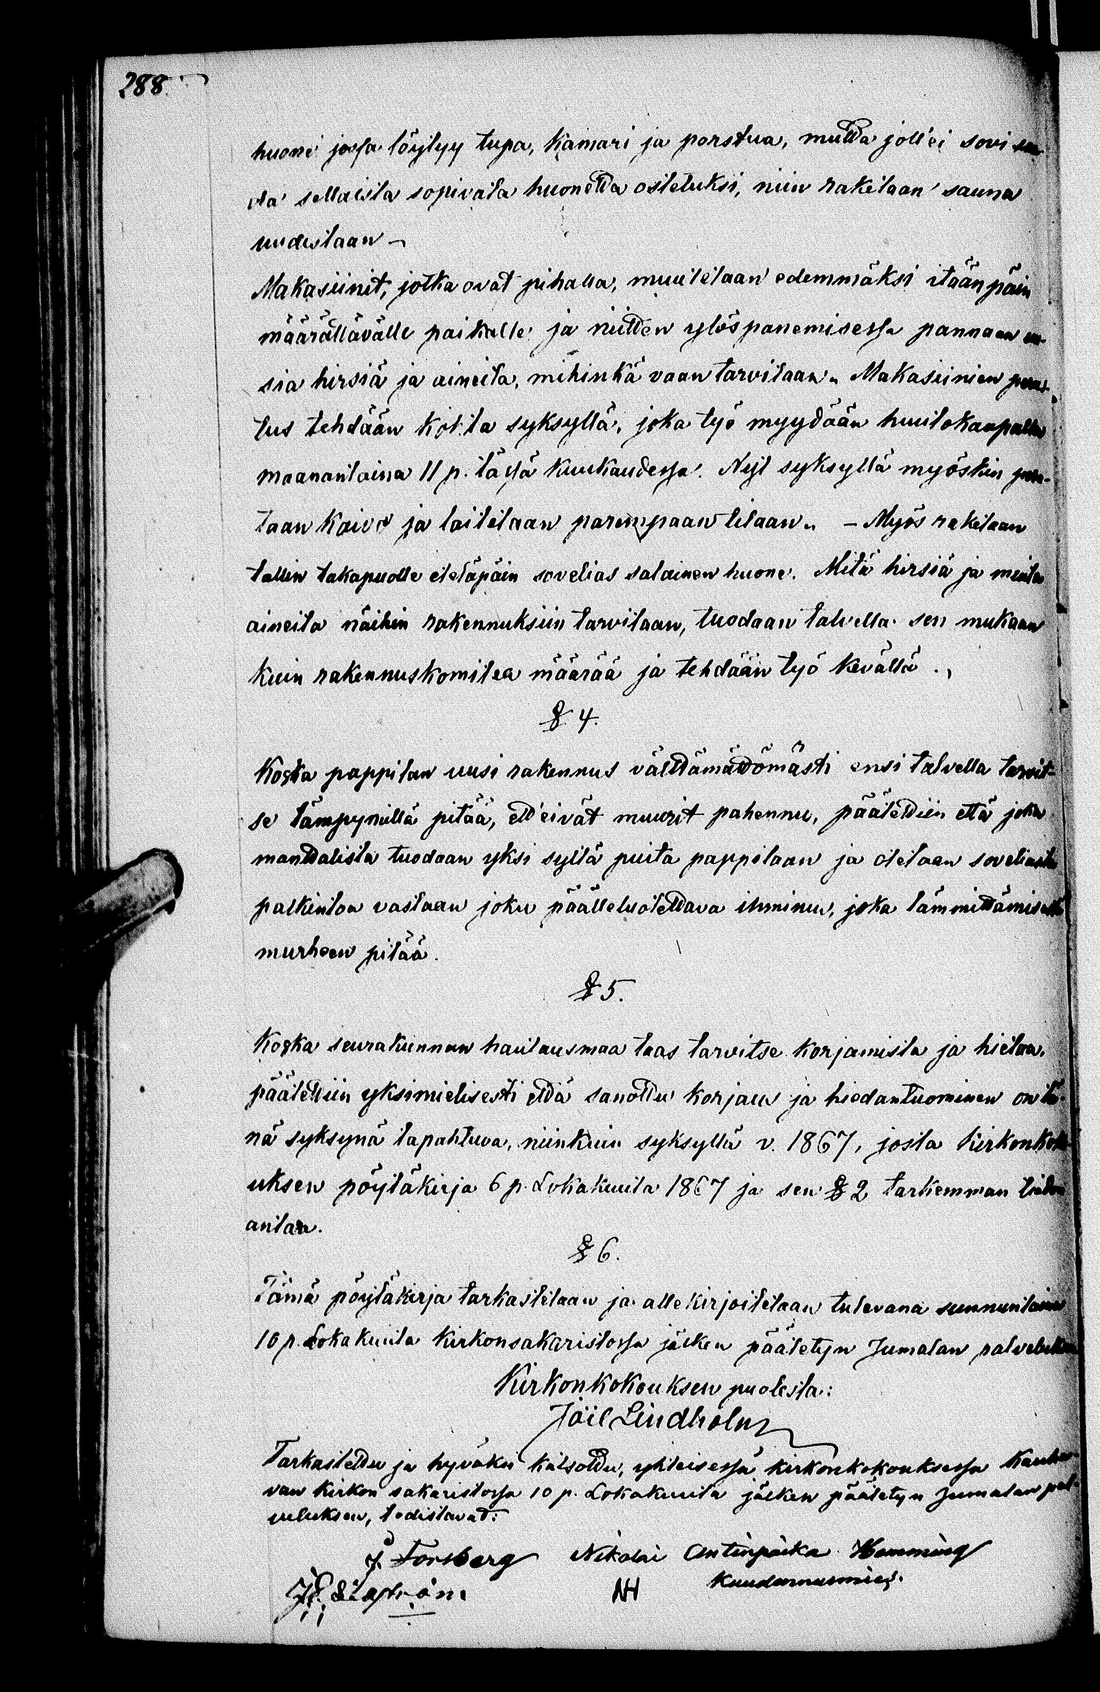 288.
huone jossa löytyy tupa, kamari ja porstua, mutta joll'ei sovi saa-
da sellaista sopivata huonetta ostetuksi, niin raketaan sauna
uudestaan –
Makasiinit, jotka ovat pihalla, muutetaan edemmäksi itäänpäin
määrättävälle paikalle ja niitten ylöspanemisessa pannaan uu-
sia hirsiä ja aineita, mihinkä vaan tarvitaan. Makasiinien perus-
tus tehdään kohta syksyllä, joka työ myydään huutokaupalla
maanantaina 11 p. tässä kuukaudessa. Nyt syksyllä myöskin
taan kaivo ja laitetaan parempaan tilaan. – Myös raketaan
tallin takapuolle eteläpäin sovelias salainen huone. Mitä hirsiä ja muita
aineita näihin rakennuksiin tarvitaan, tuodaan talvella sen mukaan
kuin rakennuskomitea määrää ja tehdään työ kevällä.
§ 4.
Koska pappilan uusi rakennus välttämättömästi ensi talvella tarvit-
se lämpymillä pitää, ett'eivät muurit pahennu, päätettiin että joka
manttalista tuodaan yksi syltä puita pappilaan ja otetaan soveliasta
palkintoa vastaan joku päälleluotettava ihminen, joka lämmittämisestä
murheen pitää.
§ 5.
Koska seurakunnan hautausmaa taas tarvitse korjamista ja hietaa,
päätettiin yksimielisesti että sanottu korjaus ja hiedantuominen on tä-
nä syksynä tapahtuva, niinkuin syksyllä v. 1867, josta kirkonkoko-
uksen pöytäkirja 6 p. Lokakuuta 1867 ja sen § 2 tarkemman tiedon
antaa.
§ 6.
Tämä pöytäkirja tarkastetaan ja allekirjoitetaan tulevana sunnuntaina
10 p. Lokakuuta kirkonsakaristossa jälken päätetyn Jumalan palveluksen
Kirkonkokouksen puolesta:
Joil Lindholm
Tarkastettu ja hyväksi katsottu, yhteisessä kirkonkokouksessa Kauha-
van kirkon sakaristossa 10 p. Lokakuuta jälken päätetyn Jumalan pal-
veluksen, todistavat:
J. Forsberg Nikolai Antinpoika Hemming
NH Kuudennusmies.